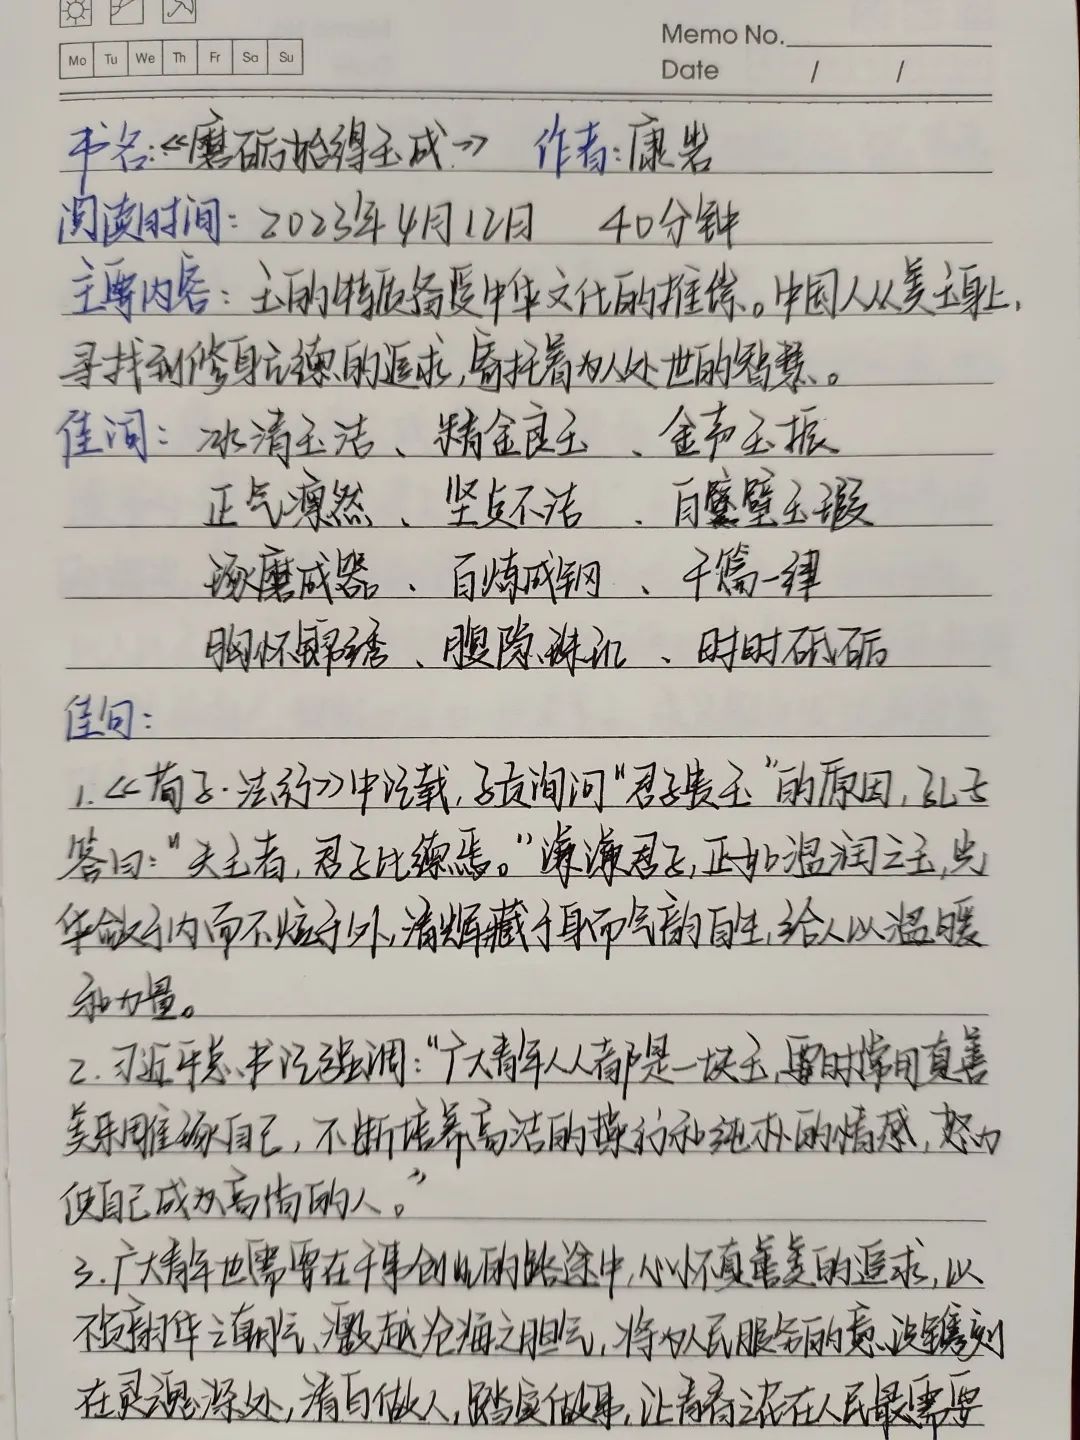 Mo Tu We Th Fr Sa Su
Memo No.
Date / /
书名:《磨砺始得玉成》 作者:康岩
阅读时间:2023年4月12日 40分钟
主要内容:玉的特质备受中华文化的推崇。中国人从美玉身上,
寻找到修身立德的追求,寄托着为人处世的智慧。
佳词:冰清玉洁、精金良玉、金声玉振
正气凛然、坚贞不洁、白璧玉瑕
琢磨成器、百炼成钢、千篇一律
胸怀锦绣、腹隐珠玑、时时砥砺
佳句:
1.《荀子·法行》中记载,子贡询问“君子贵玉”的原因,孔子
答曰:“夫玉者,君子比德焉。”谦谦君子,正如温润之玉,光
华敛于内而不炫于外,清辉藏于身而气韵自生,给人以温暖
和力量。
2.习近平总书记强调:“广大青年人人都是一块玉,要时常用真善
美来雕琢自己,不断培养高洁的操行和纯朴的情感,努力
使自己成为高尚的人。”
3.广大青年也需要在干事创业的路途中,心怀真善美的追求,以
不负韶华之朝气、激越沧海之胆气,将为人民服务的意识镌刻
在灵魂深处,清白做人,踏实做事,让青春之花在人民最需要